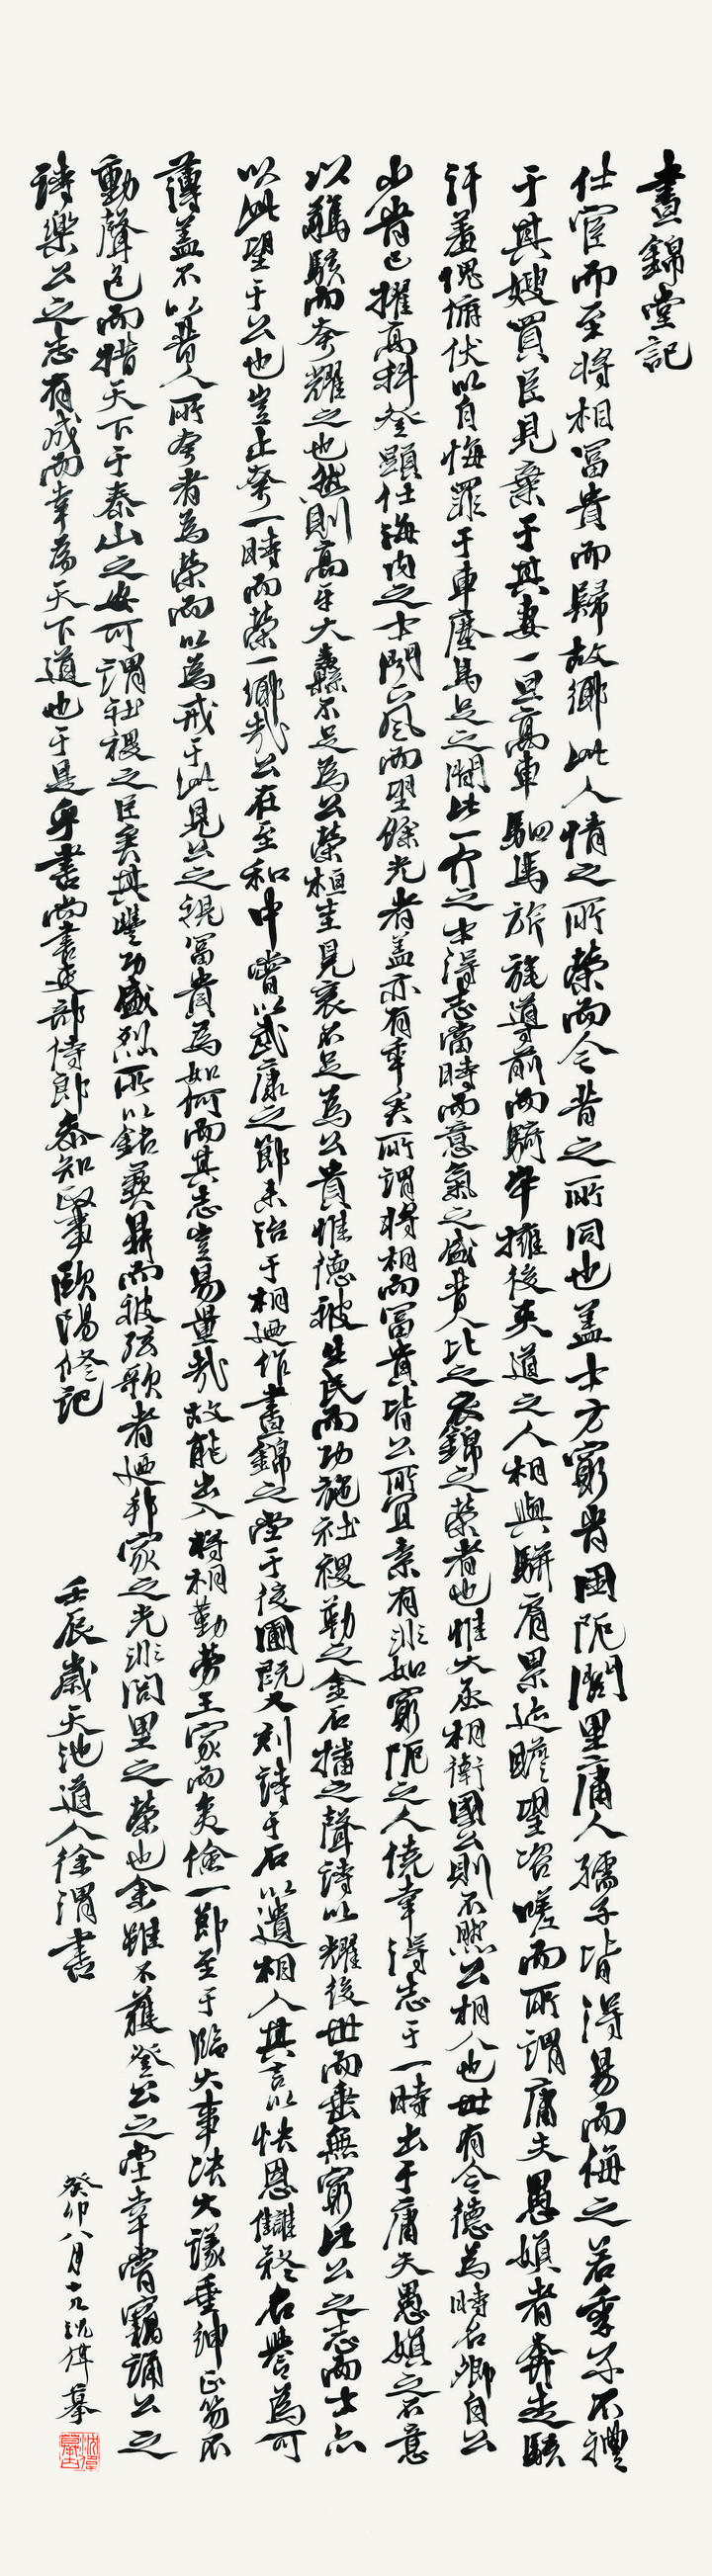 晝錦堂記
仕宦而至將相富貴而歸故鄉此人情之所榮而今昔之所同也蓋士方窮時困阨閭里庸人孺子皆得易而侮之若季子不禮
于其嫂買臣見棄于其妻一旦高車駟馬旂旄導前而騎卒擁後夾道之人相與駢肩累迹瞻望咨嗟而所謂庸夫愚婦者奔走駭
汗羞愧俯伏以自悔罪于車塵馬足之間此一介之士得志當時而意氣之盛昔人比之衣錦之榮者也惟大丞相衛國公則不然公相人也世有令德為時名卿自公
少時已擢高科登顯仕海內之士聞下風而望餘光者蓋亦有年矣所謂將相而富貴皆公所宜素有非如窮阨之人僥幸得志于一時出于庸夫愚婦之不意
以驚駭而夸耀之也然則高牙大纛不足為公榮桓圭兗裳不足為公貴惟德被生民而功施社稷勒之金石播之聲詩以耀後世而垂無窮此公之志而士亦
以此望于公也豈止夸一時而榮一鄉哉公在至和中嘗以武康之節來治于相廼作晝錦之堂于後圃既又刻詩于石以遺相人其言以快恩讎矜名譽為可
薄蓋不以昔人所夸者為榮而以為戒于此見公之視富貴為如何而其志豈易量哉故能出入將相勤勞王家而夷險一節至于臨大事決大議垂紳正笏不
動聲色而措天下于泰山之安可謂社稷之臣矣其豐功盛烈所以銘彝鼎而被弦歌者廼邦家之光非閭里之榮也余雖不獲登公之堂幸嘗竊誦公之
詩樂公之志有成而幸為天下道也于是乎書尚書吏部侍郎參知政事歐陽修記
壬辰歲天池道人徐渭書
癸卯八月十九沈偉摹